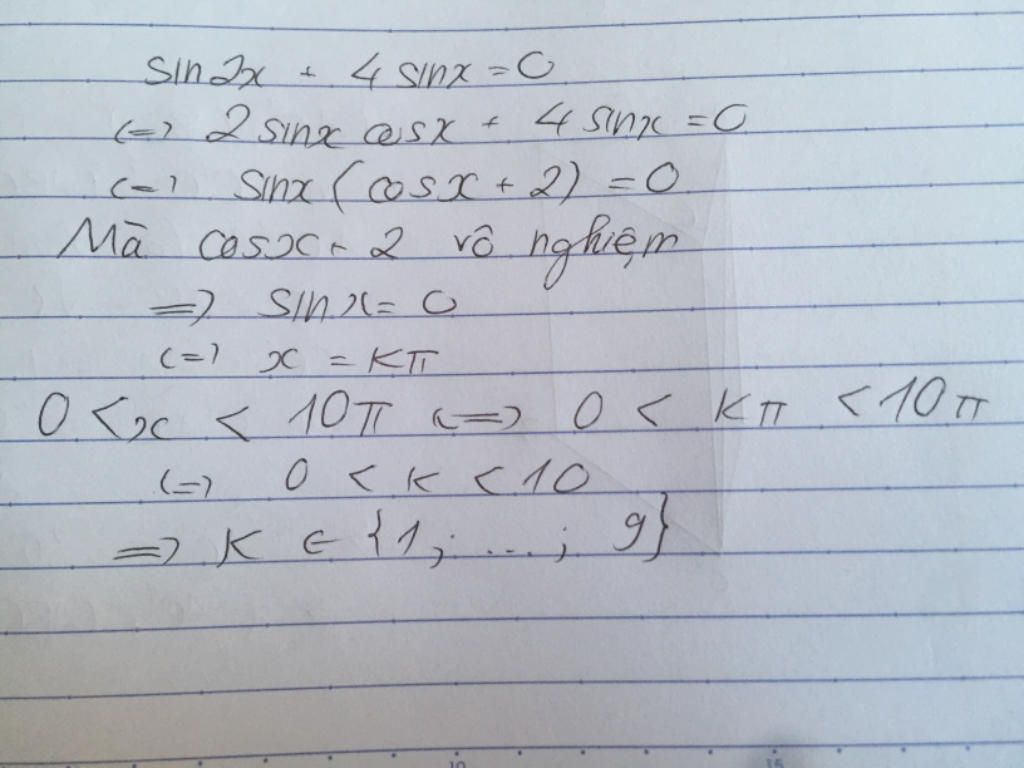 sin2x + 4 sinx = 0
<=> 2 sinx cosx + 4 sinx = 0
<=> sinx (cosx + 2) = 0
Mà cosx + 2 vô nghiệm
=> sinx = 0
<=> x = kπ
0 < x < 10π <=> 0 < kπ < 10π
<=> 0 < k < 10
=> k ∈ {1; ...; 9}
10 15